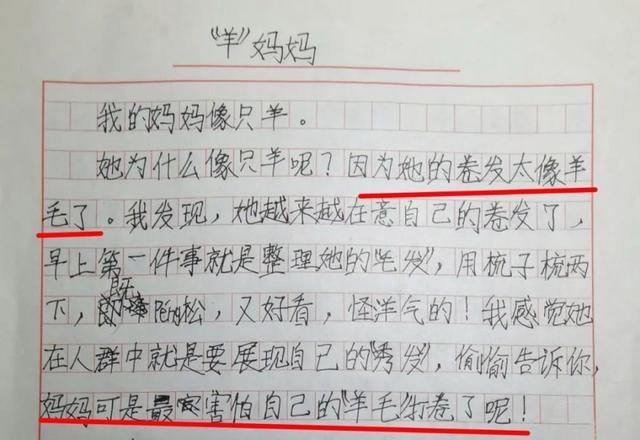 “羊”妈妈
我的妈妈像只羊。
她为什么像只羊呢？因为她的卷发太像羊
毛了。我发现，她越来越在意自己的卷发了，
早上第一件事就是整理她的“毛发”，用梳子梳两
既
下，松，又好看，怪洋气的！我感觉她
在人群中就是要展现自己的“秀发”，偷偷告诉你，
妈妈可是最害怕自己的“羊毛”打卷了呢！